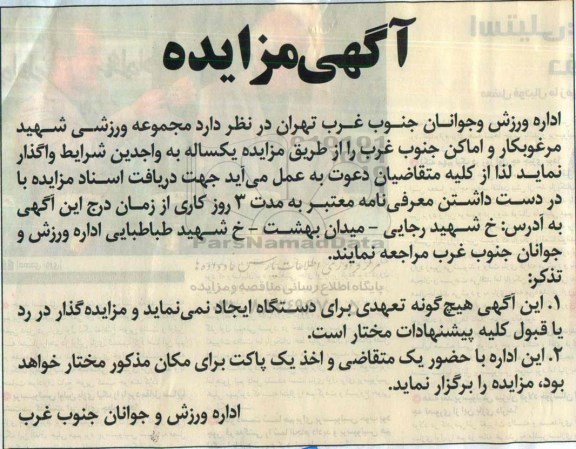 آگهی مزایده
اداره ورزش وجوانان جنوب غرب تهران در نظر دارد مجموعه ورزشی شهید
مرغوبکار و اماکن جنوب غرب را از طریق مزایده یکساله به واجدین شرایط واگذار
نماید لذا از کلیه متقاضیان دعوت به عمل می‌آید جهت دریافت اسناد مزایده با
در دست داشتن معرفی‌نامه معتبر به مدت ۳ روز کاری از زمان درج این آگهی
به آدرس: خ شهید رجایی - میدان بهشت - خ شهید طباطبایی اداره ورزش و
جوانان جنوب غرب مراجعه نمایند.
ParsNamadData
پایگاه اطلاع رسانی مناقصه و مزایده
تذکر:
۱. این آگهی هیچ‌گونه تعهدی برای دستگاه ایجاد نمی‌نماید و مزایده‌گذار در رد
یا قبول کلیه پیشنهادات مختار است.
۲. این اداره با حضور یک متقاضی و اخذ یک پاکت برای مکان مذکور مختار خواهد
بود، مزایده را برگزار نماید.
اداره ورزش و جوانان جنوب غرب